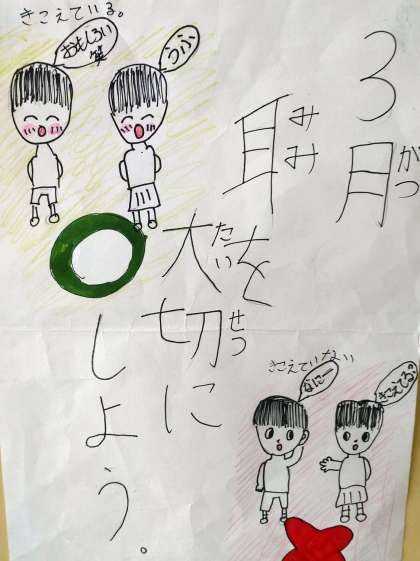 3月
がつ
耳を
みみ
大切に
たいせつ
しよう。
きこえている。
おもしろい笑
うふ
きこえていない
なにー